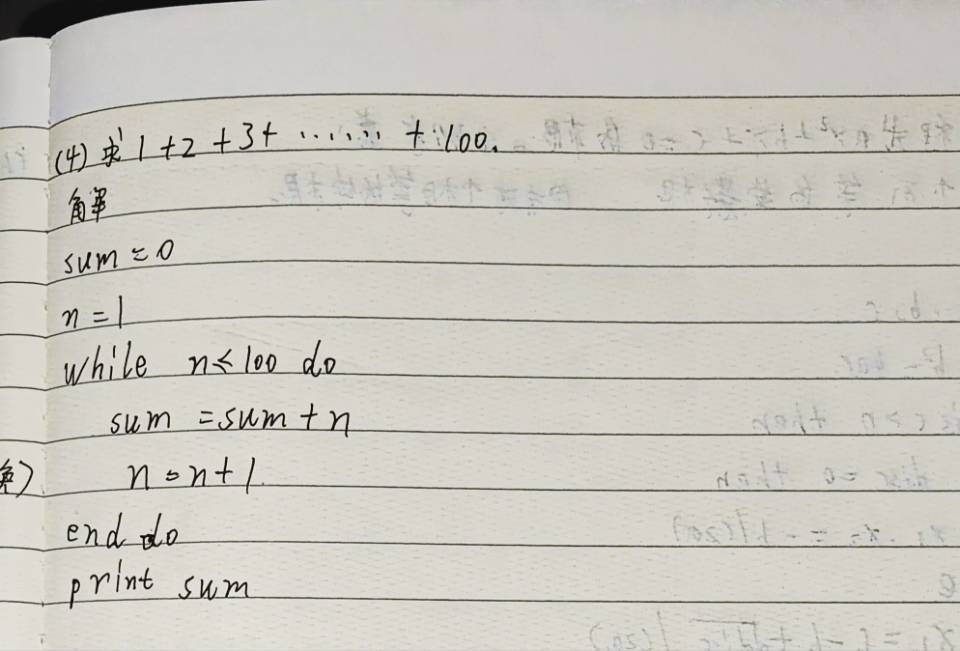 (4) 求 1+2+3+ ······ +100.
解
sum = 0
n = 1
while n ≤ 100 do
sum = sum + n
n = n + 1.
end do
print sum